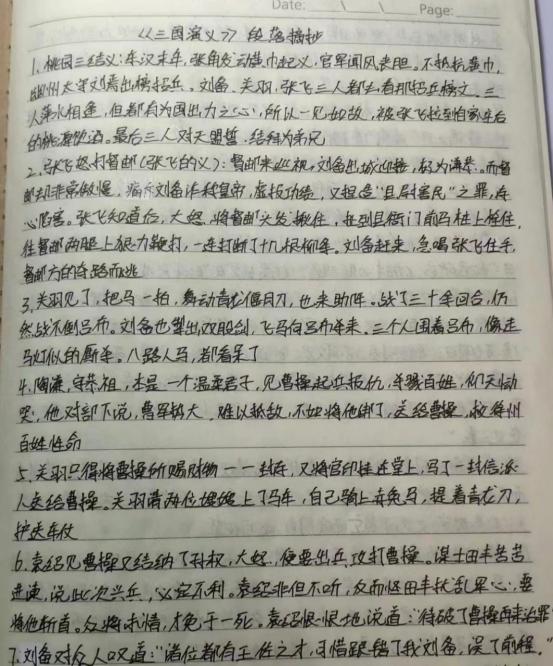 Date: \ \ Page:
《三国演义》段落摘抄
1、桃园三结义：东汉末年，张角发动黄巾起义，官军闻风丧胆。不抵抗黄巾，
幽州太守刘焉出榜招兵。刘备、关羽、张飞三人都去看那招兵榜文。三
人萍水相逢，但都有为国出力之心，所以一见如故，被张飞拉到自家庄后
的桃源饮酒。最后三人对天盟誓，结拜为弟兄
2、张飞怒打督邮（张飞的义）：督邮来巡视，刘备出城迎接，极为谦恭。而督
邮却非常傲慢，痛斥刘备诈称皇帝，虚报功绩，又捏造“县尉害民”之罪，存
心陷害。张飞知道后，大怒，将督邮头发揪住，拖到县衙门前马桩上捆住，
往督邮两腿上狠力鞭打，一连打断了十几根柳条。刘备赶来，急喝张飞住手，
督邮方的夺路而逃
3、关羽见了，把马一拍，舞动青龙偃月刀，也来助阵。战了三十余回合，仍
然战不倒吕布。刘备也掣出双股剑，飞马向吕布杀来。三个人围着吕布，像走
马灯似的厮杀。八路人马，都看呆了
4、陶谦，字恭祖，本是一个温柔君子，见曹操起兵报仇，杀戮百姓，仰天恸
哭，他对部下说，曹军势大，难以抵敌，不如将他绑了，送给曹操，救徐州
百姓性命
5、关羽只得将曹操所赐财物一一封存，又将官印挂在堂上，写了一封信派
人送给曹操。关羽请两位嫂嫂上了马车，自己骑上赤兔马，提着青龙刀，
护送车仗
6、袁绍见曹操又结纳了孙权，大怒，便要出兵攻打曹操。谋士田丰苦苦
进谏，说此次兴兵，必定不利。袁绍非但不听，反而怪田丰扰乱军心，要
将他斩首。众将求情，才免于一死。袁绍恨恨地说道：“待破了曹操再来治罪”
7、刘备对众人叹道：“诸位都有王佐之才，可惜跟错了我刘备，误了前程。”